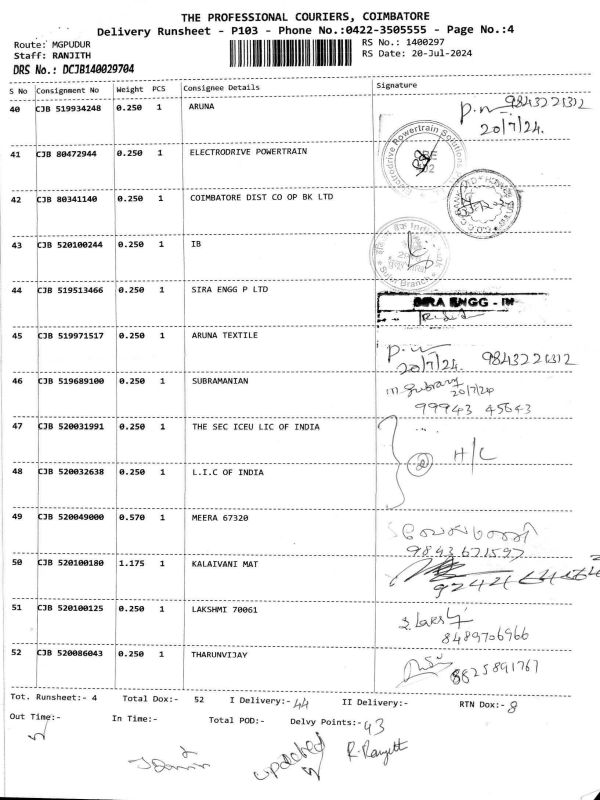 THE PROFESSIONAL COURIERS, COIMBATORE
Delivery Runsheet - P103 - Phone No.:0422-3505555 - Page No.:4
Route: MGPUDUR
Staff: RANJITH
RS No.: 1400297
RS Date: 20-Jul-2024
DRS No.: DCJB140029704
S No Consignment No Weight PCS Consignee Details Signature
40 CJB 519934248 0.250 1 ARUNA 9843221312
20/7/24.
41 CJB 80472944 0.250 1 ELECTRODRIVE POWERTRAIN
Electrodrive Powertrain Solution
42 CJB 80341140 0.250 1 COIMBATORE DIST CO OP BK LTD
43 CJB 520100244 0.250 1 IB
44 CJB 519513466 0.250 1 SIRA ENGG P LTD SIRA ENGG
45 CJB 519971517 0.250 1 ARUNA TEXTILE
20/7/24. 9843221312
46 CJB 519689100 0.250 1 SUBRAMANIAN 20/7/24
99943 45643
47 CJB 520031991 0.250 1 THE SEC ICEU LIC OF INDIA
H/C
48 CJB 520032638 0.250 1 L.I.C OF INDIA
49 CJB 520049000 0.570 1 MEERA 67320
9843671597
50 CJB 520100180 1.175 1 KALAIVANI MAT
51 CJB 520100125 0.250 1 LAKSHMI 70061
8489706966
52 CJB 520086043 0.250 1 THARUNVIJAY 8825891767
Tot. Runsheet:- 4 Total Dox:- 52 I Delivery:- 44 II Delivery:- RTN Dox:- 8
Out Time:- In Time:- Total POD:- Delvy Points:- 43
updated